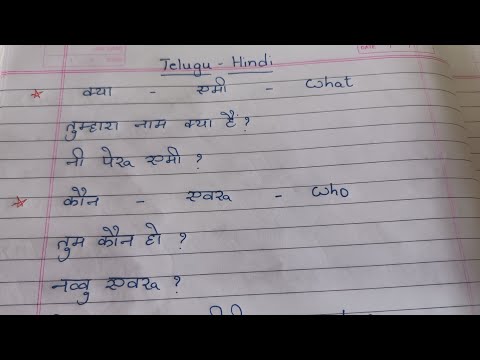 DATE
Telugu - Hindi
★ क्या - एमी - What
तुम्हारा नाम क्या है ?
नी पेरू एमी ?
★ कौन - एवरू - Who
तुम कौन हो ?
नव्वु एवरू ?